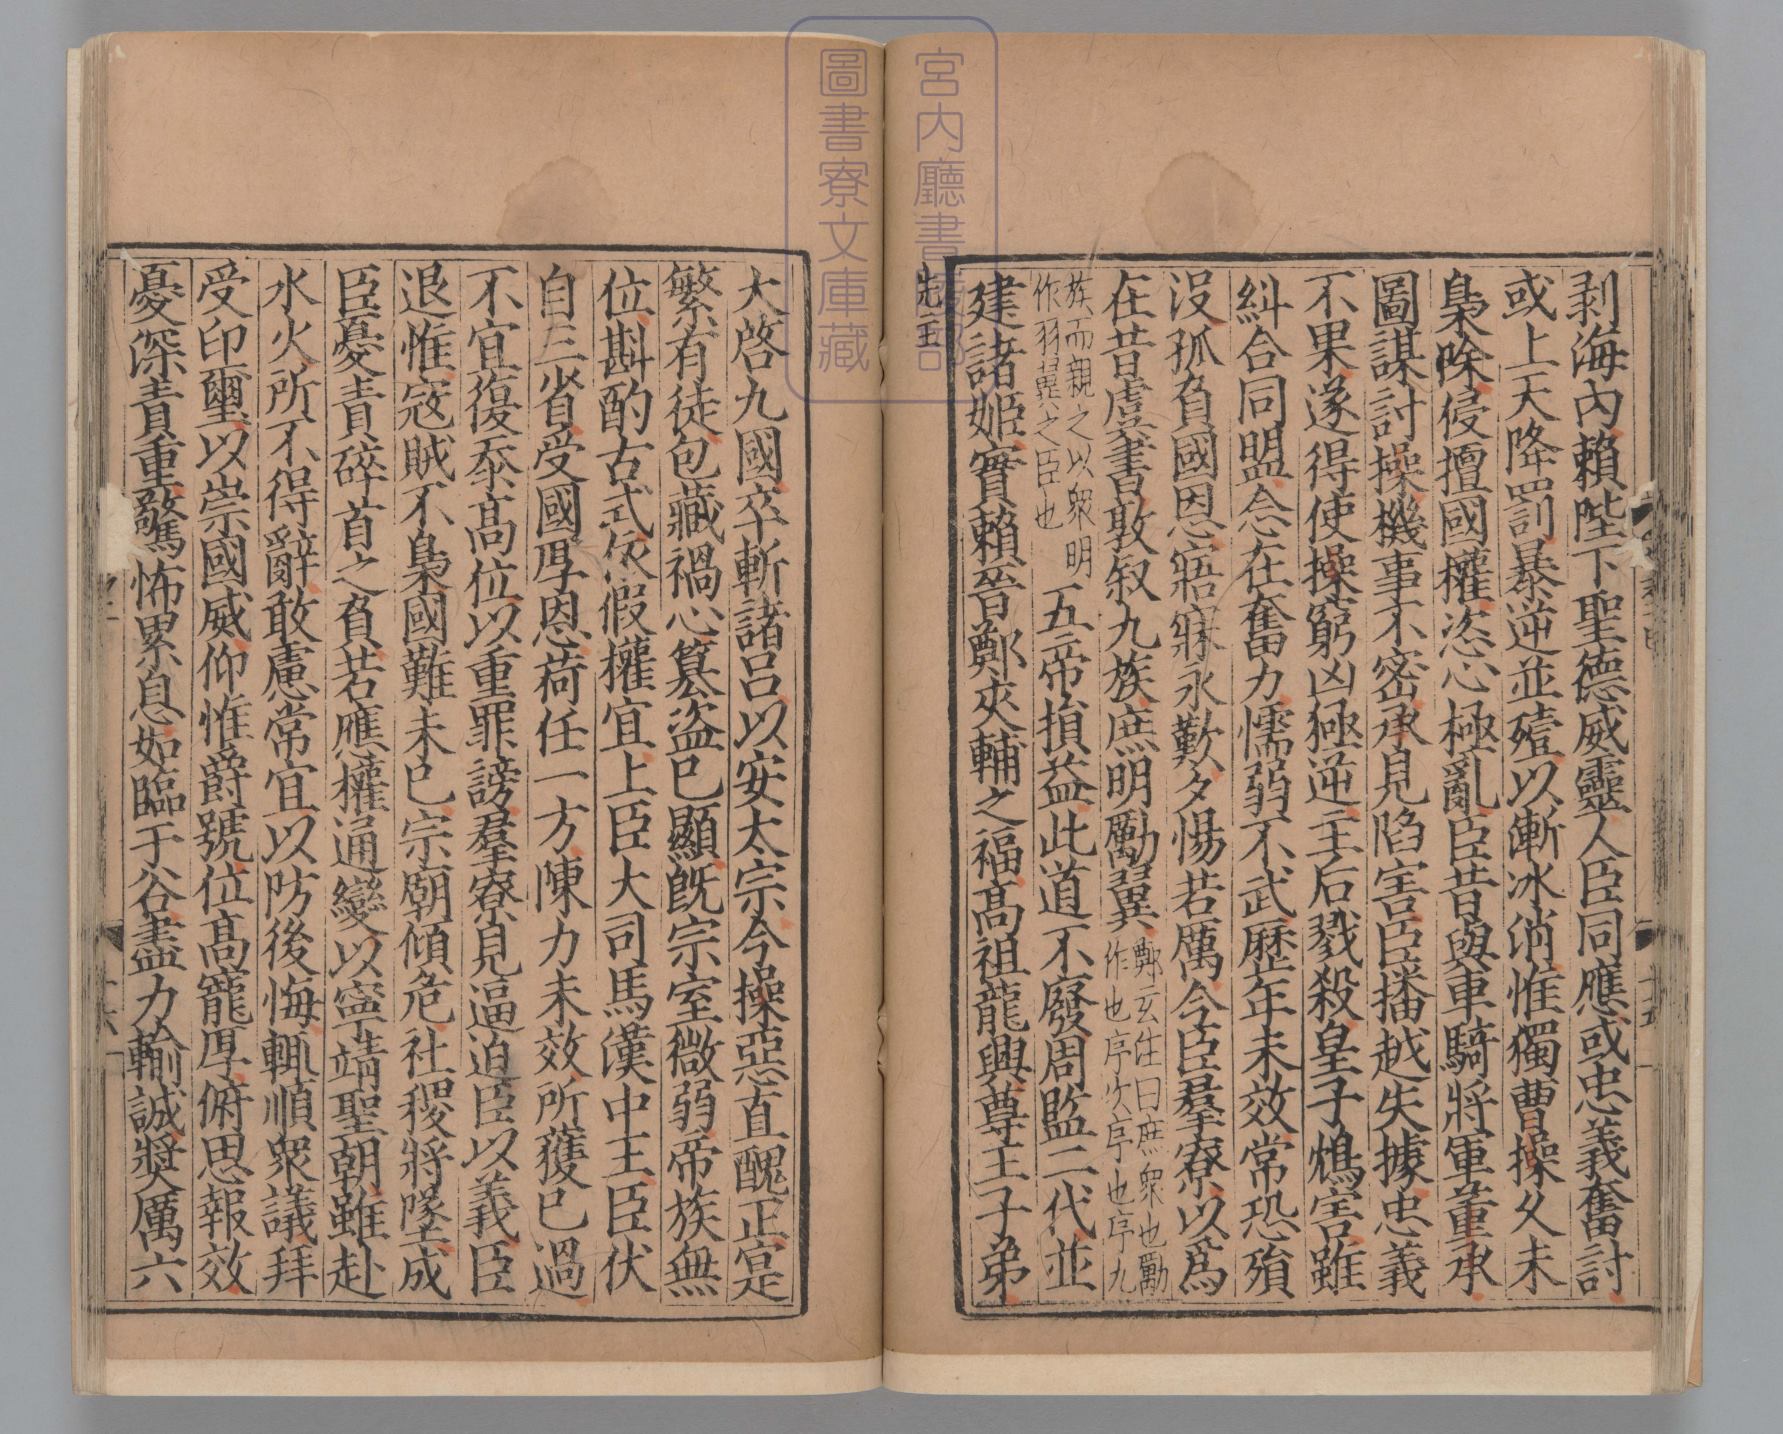 剥海内賴陛下聖德威靈人臣同應或忠義奮討
或上天降罰暴逆並殪以漸冰消惟獨曹操久未
梟除侵擅國權恣心極亂臣昔與車騎將軍董承
圖謀討操機事不密承見陷害臣播越失據忠義
不果遂得使操窮凶極逆主后戮殺皇子鴆害雖
糾合同盟念在奮力懦弱不武歷年未效常恐殞
沒孤負國恩寤寐永歎夕惕若厲今臣羣寮以爲
在昔虞書敦叙九族庶明勵翼鄭玄注曰庶衆也勵
作也序次序也序九
族而親之以衆明
作羽翼之臣也
五帝損益此道不廢周監二代並
建諸姬實賴晉鄭夾輔之福高祖龍興尊王子弟
先主
大啓九國卒斬諸呂以安太宗今操惡直醜正寔
繁有徒包藏禍心簒盗已顯旣宗室微弱帝族無
位斟酌古式依假權宜上臣大司馬漢中王臣伏
自三省受國厚恩荷任一方陳力未效所獲已過
不宜復忝高位以重罪謗羣寮見逼迫臣以義臣
退惟寇賊不梟國難未已宗廟傾危社稷將墜成
臣憂責碎首之負若應權通變以寧靖聖朝雖赴
水火所不得辭敢慮常宜以防後悔輒順衆議拜
受印璽以崇國威仰惟爵號位高寵厚俯思報效
憂深責重驚怖累息如臨于谷盡力輸誠奬厲六
宮内廳書陵部
圖書寮文庫藏